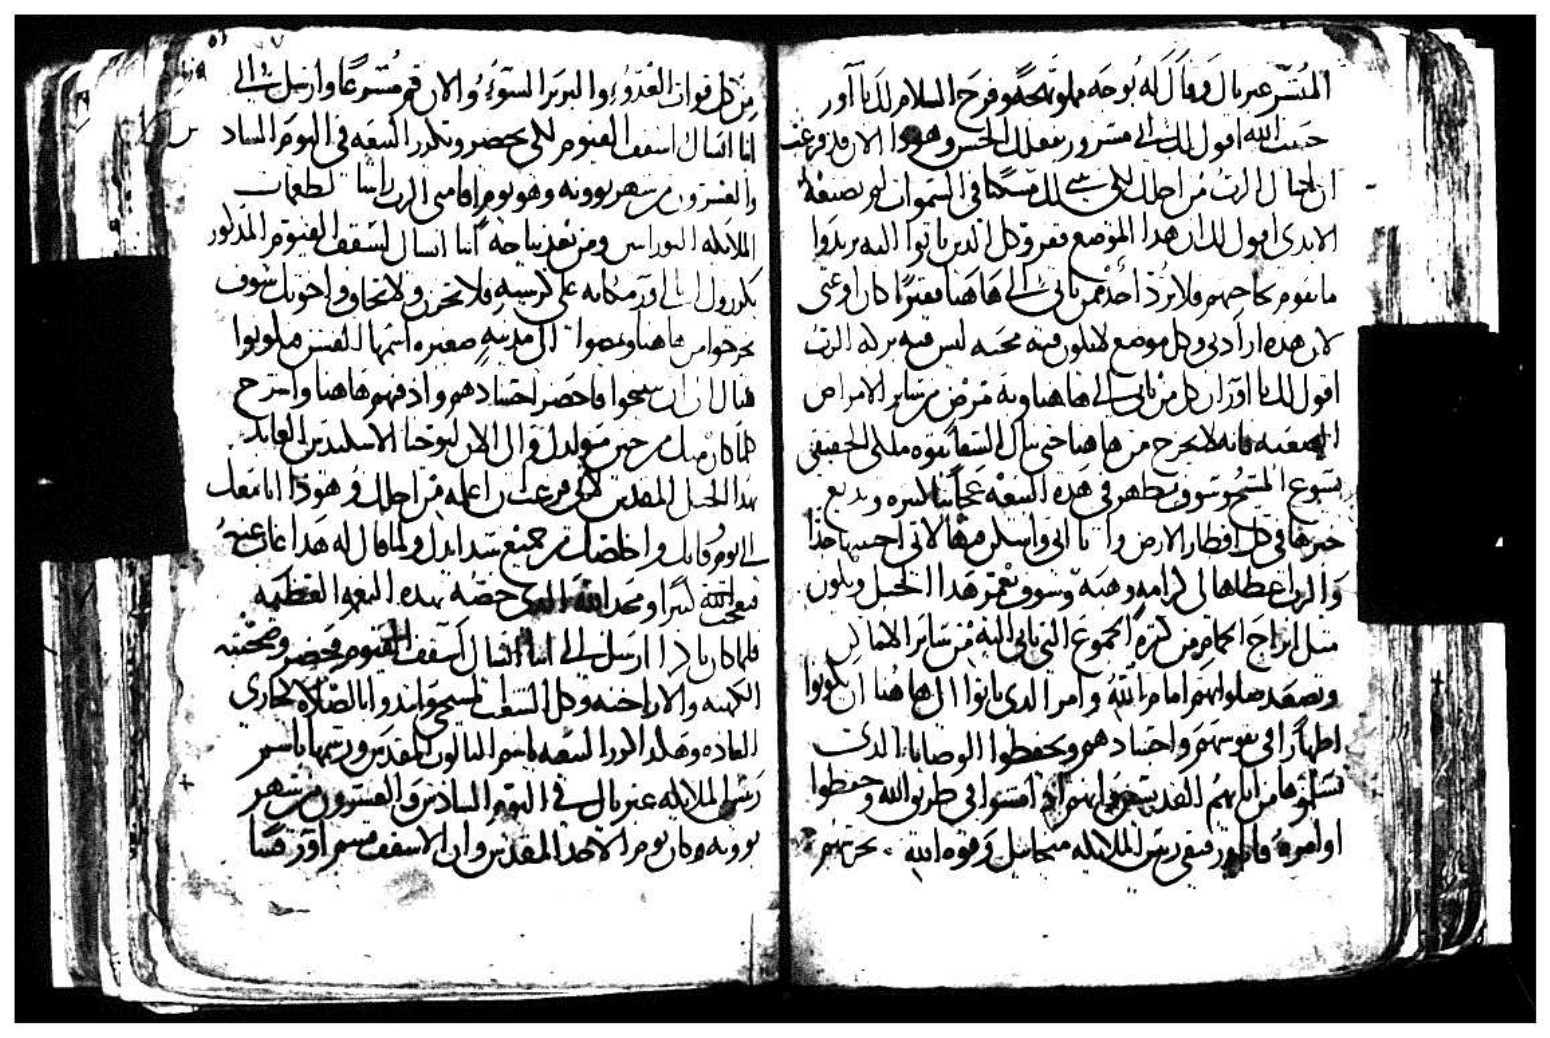 المبشر غبريال وقال له بوجه مملو بهجه وفرح السلام لك يا اور
حبيب الله اقول لك اني مسرور بعملك الحسن وهوذا الان قد فرغت
ان اجال الرب من اجلك لكي لك مسكنا في السموات لم تصنعه
الابدي اقول لك ان هذا الموضع فقير وكل الذين ياتوا اليه يريدوا
ما يقوم بحاجتهم فلا ترد احد ممن ياتي الي هاهنا فقيرا كان او غني
لان هذه ارادتي وكل موضع لا يكون فيه محبه ليس فيه بركه الرب
اقول لك يا اور ان كل من ياتي الي هاهنا وبه مرض من ساير الامراض
الصعبه فانه لا يخرج من هاهنا حتي ينال الشفا بقوه ملكي الحقيقي
يسوع المسيح وسوف يظهر في هذه البيعه عجايبا كثيره ويذيع
خبرها في كل اقطار الارض وانا اتي واسكن فيها لاني احبيتها جدا
والرب اعطاها لي كرامه وهبه وسوف يعمر هذا الجبل ويكون
مثل ابراج الحمام من كثره الجموع التي ياتي اليه من ساير الاماكن
وتصعد صلواتهم امام الله وامر الذي ياتوا الي هاهنا ان يكونوا
اطهارا في نفوسهم واجسادهم ويحفظوا الوصايا الذي
تسلموها من ابايهم القديسين انهم امشوا في طريق الله وحفظوا
اوامره فانا ورفيقي رييس الملايكه ميخاييل وقوه الله نحرسهم
من كل قوات العدو والبربر السو والان قم مسرعا وارسل الي
انبا اسال اسقف الفيوم لكي يحضر وتكرز البيعه في اليوم الساد
س والعشرون من شهر بوونه وهو يوم اقامني الرب راسا لطغمات
الملايكه النورانيين ومن بعد نياحه انبا اسال اسقف الفيوم المذكور
يكرزوك انت يا اور مكانه علي كرسيه فلا تحزن ولا تخاف واخوتك سوف
يخرجوا من هاهنا ويمضوا الي مدينه صغيره اسمها الفشن فيكونوا
هناك الي ان يتنيحوا فاحضر اجسادهم وادفنهم هاهنا واسترح
كما كان معك من حين مولدك والي الان ليوحنا الاسكندري العابد
بهذا الجبل المقدس لاني فرغت ان اعلمه من اجلك وهوذا انا معك
الي يوم وفاتك واخلصك من جميع شدايدك ولما قال له هذا غاب عنه
فتعجب كثيرا ومجد الله الذي خصه بهذه النعمه العظيمه
فلما كان باكرا ارسل الي انبا اسال اسقف الفيوم فحضر وصحبته
الكهنه والاراخنه وكل الشعب المسيحي وابتدوا بالصلاه كجاري
العاده وهكذا كرزوا البيعه باسم الثالوث المقدس ورسمها باسم
رييس الملايكه غبريال في اليوم السادس والعشرون من شهر
بوونه وكان يوم الاحد المقدس وان الاسقف قسم اور قسا